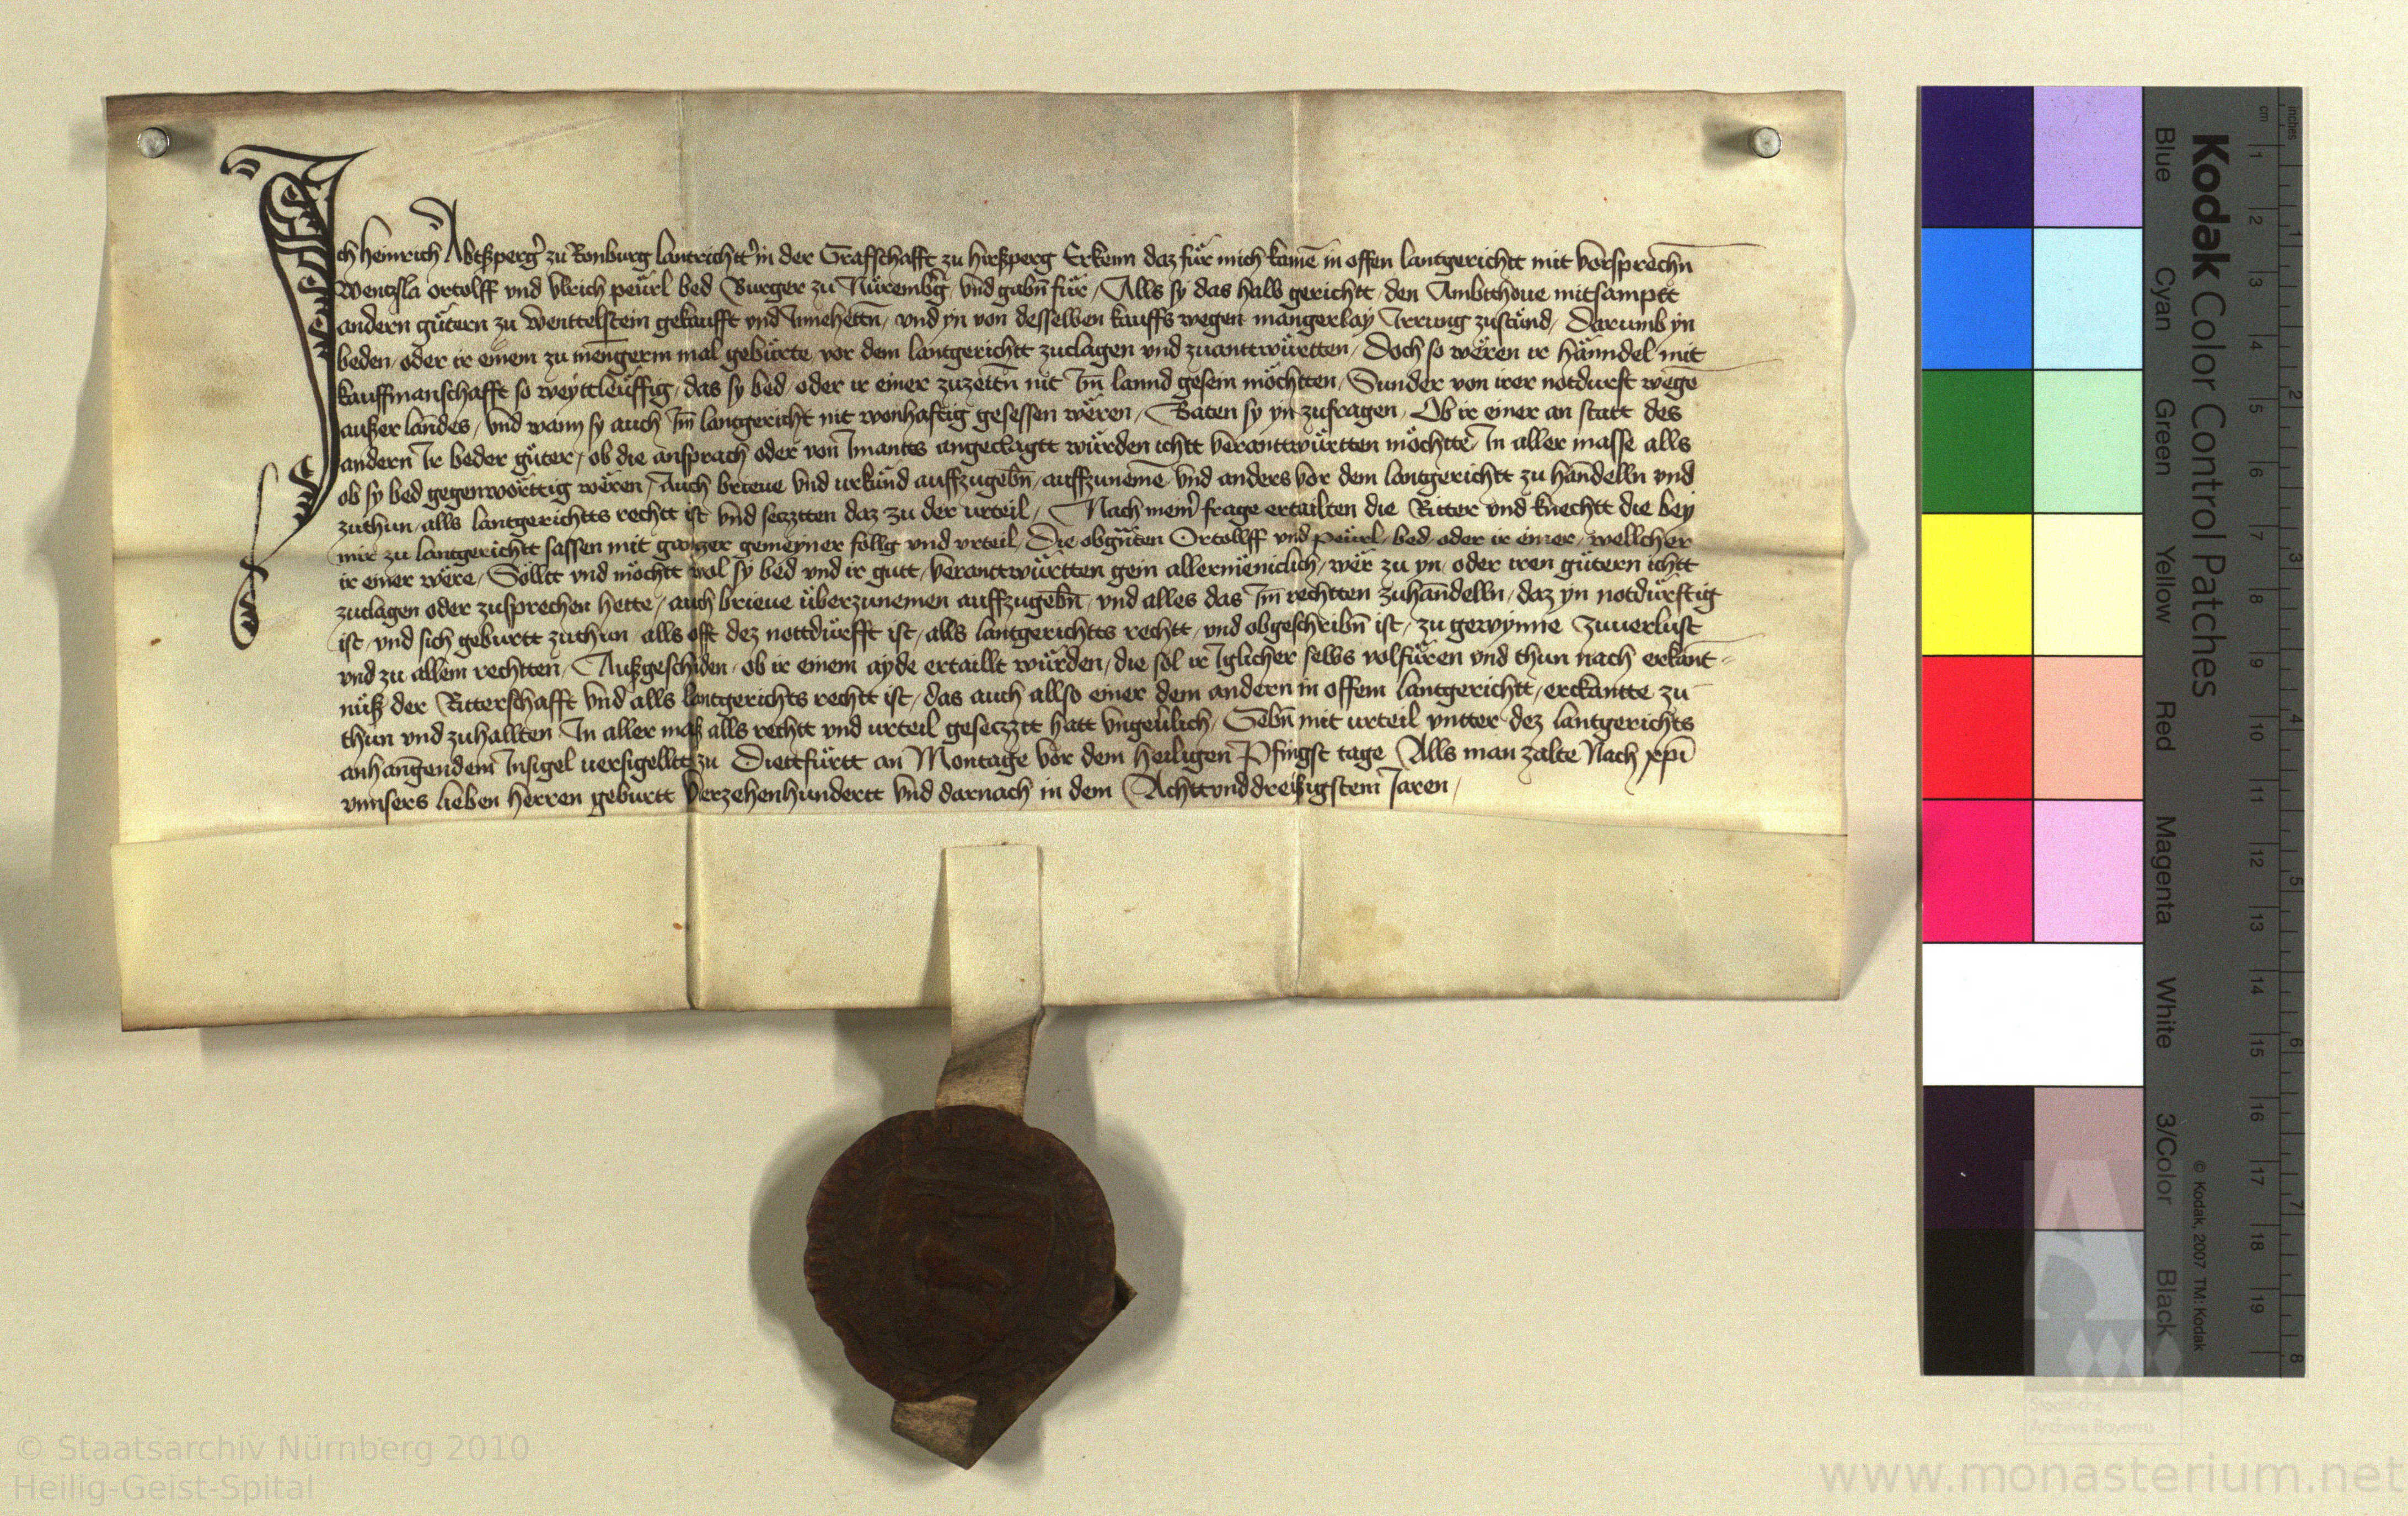 Ich Heinrich Abtsperg̉ zu Ronburg lantrichtt̉ in der Graffschafft zu hirßperg Erkenn daz für mich kamē in offen lantgerichtt mit vorsprechn̄
Wentzla ortolff vnd Vlrich peurl bed Burger zu Nüremb̉g vnd gabn̄ für / Alls sy das halb gerichtt / den Ambtthoue mitsamptt
andern gütern zu Wenttelstein gekaufft vnd Innehettn̄ / vnd yn von desselben kauffs wegen mangerlay Irrung zustünd / Darumb yn
beden / oder ir einem zu mengerm mal gebürte / vor dem lantgerichtt zuclagen vnd zuanttwürtten / Doch so weren ir hänndel mit
kauffmanschafft so weyttleüffig / das sy bed / oder ir einer zuzeittn̄ nit Im̄ lannd gesein möchtten / Sunder von irer notdurft wegē
außer landes / vnd wann sy auch Im̄ lantgericht nit wonhaftig gesessen weren / Baten sy yn zufragen / Ob ir einer an statt des
andern Ir beder güter / ob die ansprach oder von Imants angeclagtt würden ichtt verantwürtten möchtte / In aller masse alls
ob sy bed gegenwörttig weren / Auch brieue vnd urkünd auffzugebn̄ / auffzunemē vnd anders vor dem lantgerichtt zu handelln vnd
zuthun / alls lantgerichtts rechtt ist vnd seczten daz zu der urteil / Nach mein̉ frage ertailten die Ritter vnd knechtt die bey
mir zu lantgerichtt sassen mit ganzer gemeyner follg vnd vrteil / Die obgn̄ten Ortollff vnd peürl / bed / oder ir einer / wellcher
ir einer were / Solltt vnd möchtt wol sy bed vnd ir gutt / veranttwürtten gein allermeniclich / wer zu yn / oder iren gütern ichtt
zuclagen oder zusprechen hette / auch brieue überzunemen auffzugebn̄ / vnd alles das Im̄ rechtten zuhandelln / daz yn notdürftig
ist / vnd sich geburtt zuthun / alls offt dez nottdürfft ist / alls lantgerichtts rechtt / vnd obgeschribn̄ ist / zu gewynne zuuerlust
vnd zu allem rechtten / Außgeschiden / ob ir einem ayde ertaillt würden / die sol ir Iglicher selbs volfüren vnd thun nach erkant-
nüß der Ritterschafft vnd alls lantgerichts rechtt ist / das auch allso einer dem andern in offem lantgerichtt / erckantte zu
thun vnd zuhallten In aller maß alls rechtt vnd urteil geseczzt hatt vngeu̓lich / Gebn̄ mit urteil vntter dez lantgerichts
anhangendem Insigel uersigelltt zu Diettfürtt an Montage vor dem heiligen Pfingst tage Alls man zalte Nach xp̄i
vnnsers lieben herren geburtt Vierzehenhundertt vnd darnach in dem Achttvnddreißigstem Jaren /
Kodak Color Control Patches
© Kodak, 2007 TM: Kodak
Blue Cyan Green Yellow Red Magenta White 3/Color Black
cm 1 2 3 4 5 6 7 8 9 10 11 12 13 14 15 16 17 18 19
inches 1 2 3 4 5 6 7 8
Staatliche
Archive Bayerns
© Staatsarchiv Nürnberg 2010
Heilig-Geist-Spital
www.monasterium.net